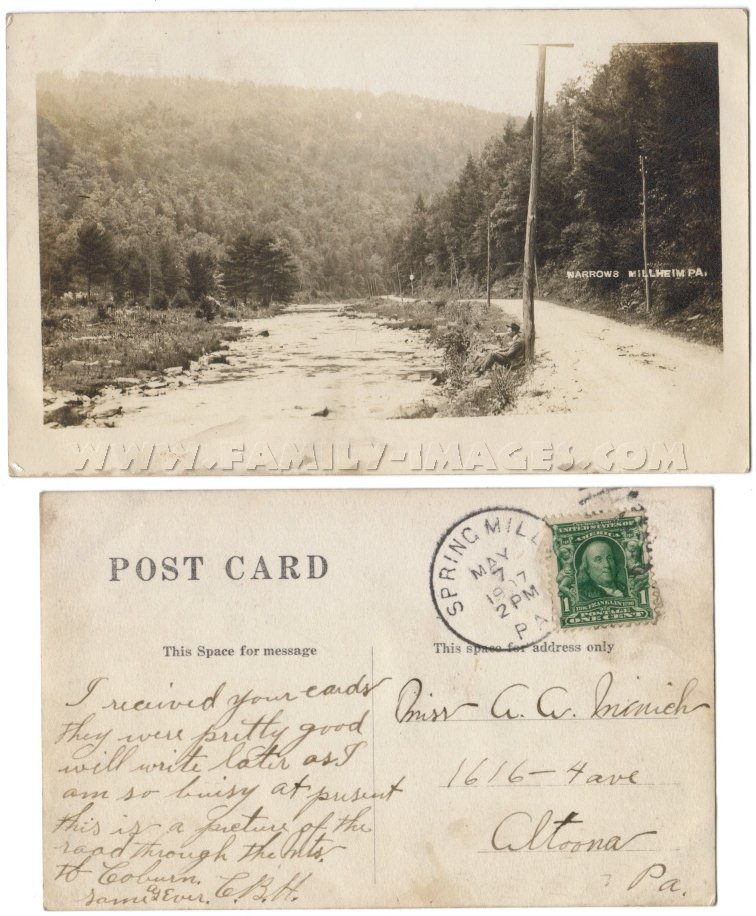 NARROWS MILLHEIM PA.
WWW.FAMILY-IMAGES.COM
POST CARD
SPRING MILL
MAY
7
1907
2 PM
PA
UNITED STATES OF
AMERICA
1 FRANKLIN 1
POSTAGE
ONE CENT
This Space for message
This space for address only
I received your cards
they were pretty good
will write later as I
am so buisy at present
this is a picture of the
road through the mts.
to Coburn.
same as Ever. C.B.H.
Miss A. A. Minich
1616 - 4 ave
Altoona
Pa.